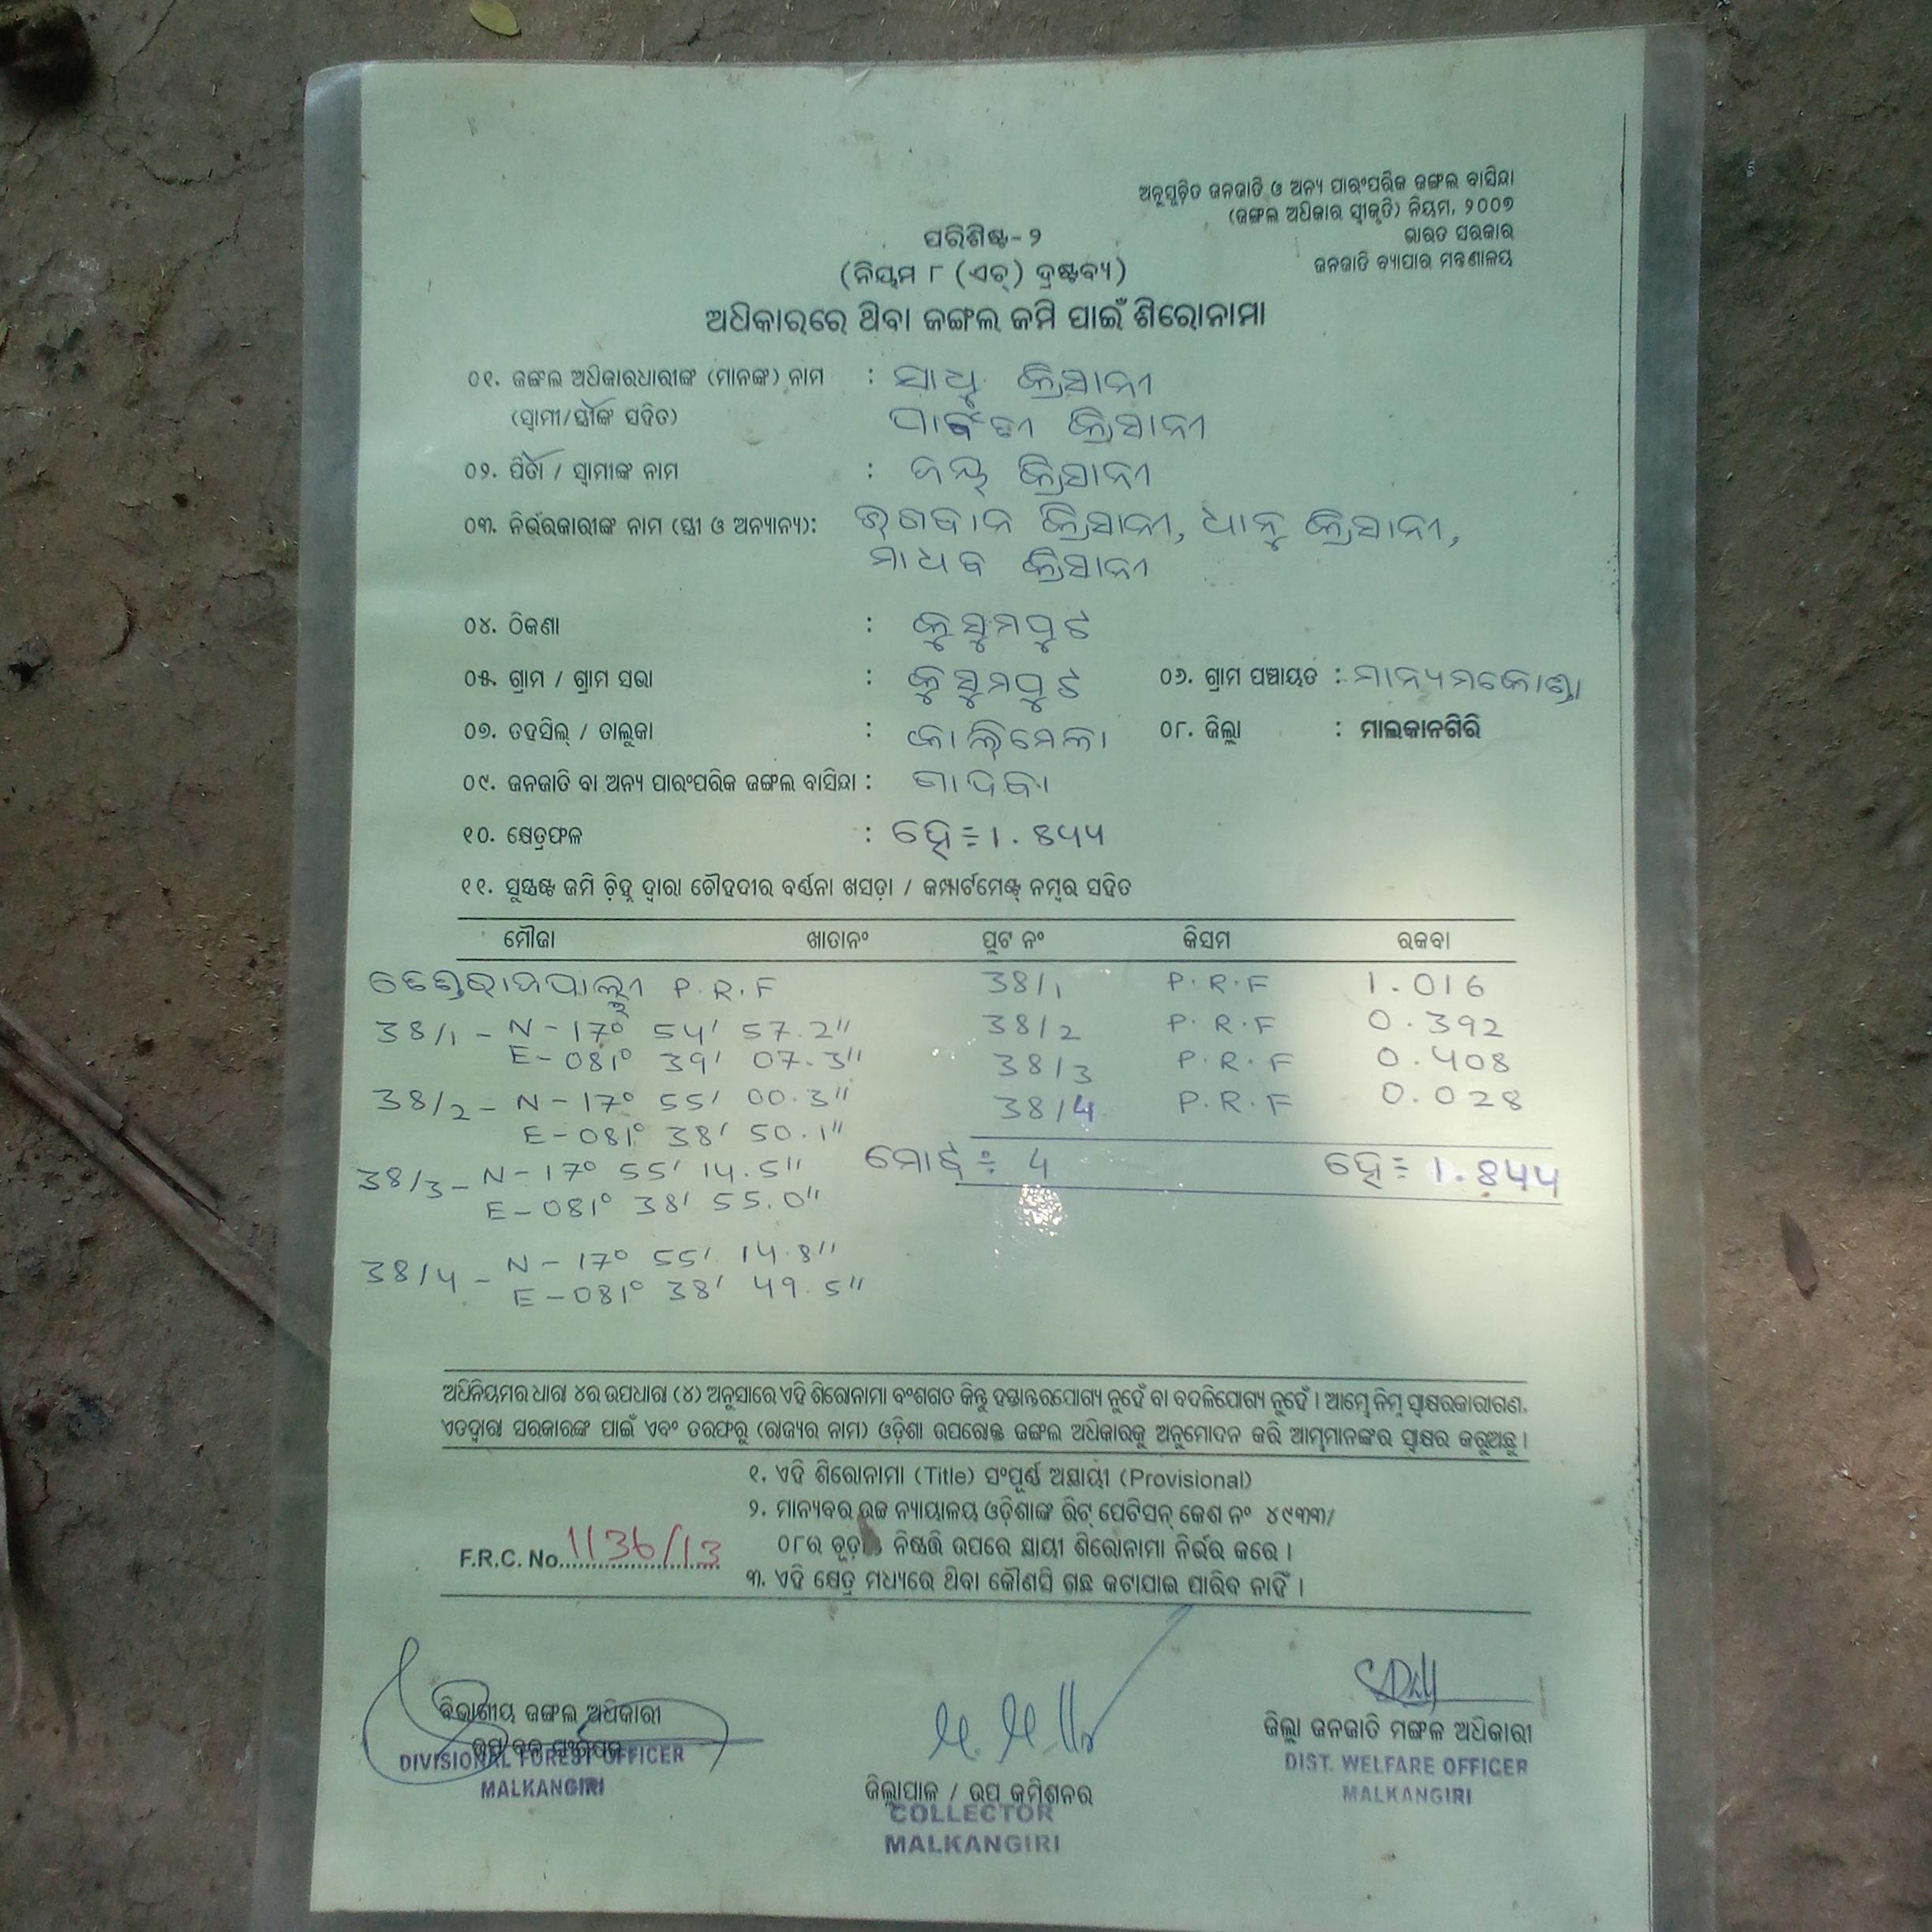 ଅନୁସୂଚିତ ଜନଜାତି ଓ ଅନ୍ୟ ପାରଂପରିକ ଜଙ୍ଗଲ ବାସିନ୍ଦା
(ଜଙ୍ଗଲ ଅଧିକାର ସ୍ୱୀକୃତି) ନିୟମ, ୨୦୦୭
ଭାରତ ସରକାର
ଜନଜାତି ବ୍ୟାପାର ମନ୍ତ୍ରଣାଳୟ
ପରିଶିଷ୍ଟ-୨
(ନିୟମ ୮ (ଏଚ୍) ଦ୍ରଷ୍ଟବ୍ୟ)
ଅଧିକାରରେ ଥିବା ଜଙ୍ଗଲ ଜମି ପାଇଁ ଶିରୋନାମା
୦୧. ଜଙ୍ଗଲ ଅଧିକାରଧାରୀଙ୍କ (ମାନଙ୍କ) ନାମ : ସାଧୁ କ୍ରିସାନୀ
(ସ୍ୱାମୀ/ସ୍ତ୍ରୀଙ୍କ ସହିତ) ପାର୍ବତୀ କ୍ରିସାନୀ
୦୨. ପିତା / ସ୍ୱାମୀଙ୍କ ନାମ : ଜୟ କ୍ରିସାନୀ
୦୩. ନିର୍ଭରକାରୀଙ୍କ ନାମ (ସ୍ତ୍ରୀ ଓ ଅନ୍ୟାନ୍ୟ): ଭଗବାନ କ୍ରିସାନୀ, ଧାନୁ କ୍ରିସାନୀ,
ମାଧବ କ୍ରିସାନୀ
୦୪. ଠିକଣା : କୁସୁମପୁଟ
୦୫. ଗ୍ରାମ / ଗ୍ରାମ ସଭା : କୁସୁମପୁଟ ୦୬. ଗ୍ରାମ ପଞ୍ଚାୟତ : ମାନ୍ୟମକୋଣ୍ଡା
୦୭. ତହସିଲ୍ / ତାଲୁକା : କାଲିମେଳା ୦୮. ଜିଲ୍ଲା : ମାଲକାନଗିରି
୦୯. ଜନଜାତି ବା ଅନ୍ୟ ପାରଂପରିକ ଜଙ୍ଗଲ ବାସିନ୍ଦା : ଗାଦବା
୧୦. କ୍ଷେତ୍ରଫଳ : ହେ÷ 1.844
୧୧. ସୁସ୍ପଷ୍ଟ ଜମି ଚିହ୍ନ ଦ୍ୱାରା ଚୌହଦୀର ବର୍ଣ୍ଣନା ଖସଡ଼ା / କମ୍ପାର୍ଟମେଣ୍ଟ ନମ୍ବର ସହିତ
ମୌଜା ଖାତାନଂ ପ୍ଲଟ ନଂ କିସମ ରକବା
P.R.F 38/1 P.R.F 1.016
38/1 - N - 17° 54' 57.2" 38/2 P.R.F 0.392
E - 081° 39' 07.3" 38/3 P.R.F 0.408
38/2 - N - 17° 55' 00.3" 38/4 P.R.F 0.028
E - 081° 38' 50.1"
38/3 - N - 17° 55' 14.5" ମୋଟ ÷ 4 ହେ÷ 1.844
E - 081° 38' 55.0"
38/4 - N - 17° 55' 14.8"
E - 081° 38' 49.5"
ଅଧିନିୟମର ଧାରା ୪ର ଉପଧାରା (୪) ଅନୁସାରେ ଏହି ଶିରୋନାମା ବଂଶଗତ କିନ୍ତୁ ହସ୍ତାନ୍ତରଯୋଗ୍ୟ ନୁହେଁ ବା ବଦଳିଯୋଗ୍ୟ ନୁହେଁ । ଆମ୍ଭେ ନିମ୍ନ ସ୍ୱାକ୍ଷରକାରୀଗଣ,
ଏତଦ୍ୱାରା ସରକାରଙ୍କ ପାଇଁ ଏବଂ ତରଫରୁ (ରାଜ୍ୟର ନାମ) ଓଡ଼ିଶା ଉପରୋକ୍ତ ଜଙ୍ଗଲ ଅଧିକାରକୁ ଅନୁମୋଦନ କରି ଆମ୍ଭମାନଙ୍କର ସ୍ୱାକ୍ଷର କରୁଅଛୁ ।
୧. ଏହି ଶିରୋନାମା (Title) ସଂପୂର୍ଣ୍ଣ ଅସ୍ଥାୟୀ (Provisional)
୨. ମାନ୍ୟବର ଉଚ୍ଚ ନ୍ୟାୟାଳୟ ଓଡ଼ିଶାଙ୍କ ରିଟ୍ ପେଟିସନ୍ କେଶ ନଂ ୪୯୩୩/
୦୮ର ଚୂଡ଼ାନ୍ତ ନିଷ୍ପତ୍ତି ଉପରେ ସ୍ଥାୟୀ ଶିରୋନାମା ନିର୍ଭର କରେ ।
F.R.C. No. 1136/13
୩. ଏହି କ୍ଷେତ୍ର ମଧ୍ୟରେ ଥିବା କୌଣସି ଗଛ କଟାଯାଇ ପାରିବ ନାହିଁ ।
ବିଭାଗୀୟ ଜଙ୍ଗଲ ଅଧିକାରୀ
DIVISIONAL FOREST OFFICER
MALKANGIRI
ଜିଲ୍ଲାପାଳ / ଉପ କମିଶନର
COLLECTOR
MALKANGIRI
ଜିଲ୍ଲା ଜନଜାତି ମଙ୍ଗଳ ଅଧିକାରୀ
DIST. WELFARE OFFICER
MALKANGIRI